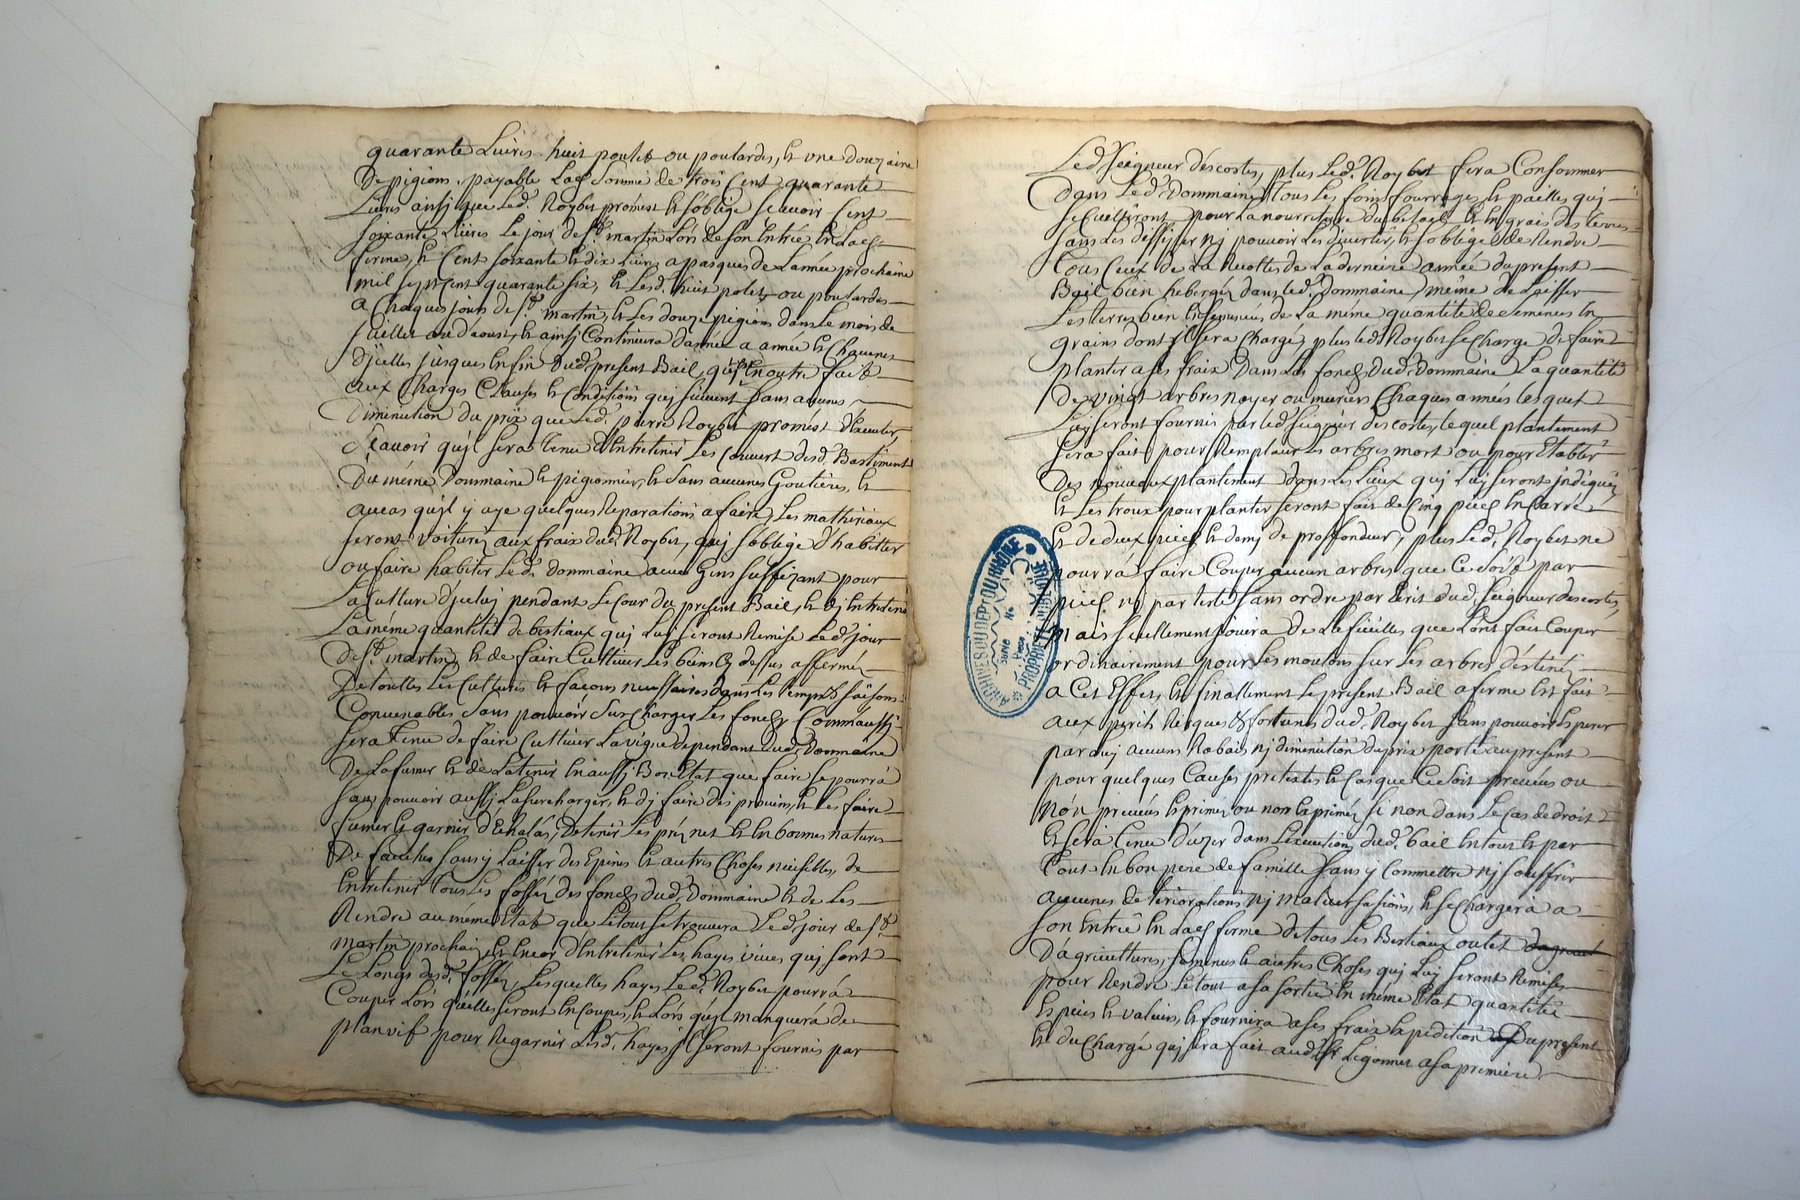 quarante Livres huit poulets ou poulardes, et une douzaine
De pigions, payable Lad. Somme de trois Cent quarante
Livres ainsi que Led. Noybet promest et soblige scavoir Cent
soixante Livres Le jour de St. martin Lors de son Entrée En Lad.
ferme, et Cent soixante et dix Livres a pasques de Lannée prochaine
mil sept cent quarante six, et Lesd. huit polets ou poulardes
a Chaques jours de St. martin, et Les douze pigions dans Le mois de
Juillet ou d'aoust, et ainsi Continuera dannée a année et Chacunes
dicelles jusques En fin dud. present Bail, qui est En outre fait
aux Charges Clauses et Conditions qui suivent sans aucunes
Diminution du prix que Led. pierre Noybet promest d'Executer,
Scavoir qu'il sera Tenu d'Entretenir Les Couvert desd. Bastiment
Du méme Dommaine et pigionnier, et sans aucunes Goutieres, et
aucas quil y aye quelques Reparations a faire, Les mathériaux
seront voiturez aux fraix dud. Noybet, qui soblige d'habitter
ou faire habiter Led. dommaine avec Gens suffizant pour
La Culture d'jceluy pendant Le Cour du present Bail, et dj Entretenir
La méme quantité de bestiaux qui Luy seront Remise Led. jour
De St. martin, et de faire Cultiver Les biens Cy dessus affermé
De touttes Les Cultures et façons necessaires dans Les temps et saisons
Convenables sans pouvoir sur Charger Les fonds, Comm'aussy
sera tenu de faire Cultiver La vigne dependant dud. Dommaine
De La fumer et de La tenir En aussy Bon Etat que faire se pourra
sans pouvoir aussy La surcharger, et dj faire des provins, et Les faire
fumer et garnir d'Echalas, De tenir Les prez net et En bonnes natures
De fauches sans y Laisser des Epines et autres Choses nuisibles, de
Entretenir Tous Les fossez des fonds dud. Dommaine et de Les
Rendre au méme Etat que Le tout se trouvera Led. jour de St.
martin prochain, et Encor d'Entretenir Les hayes vives qui sont
Le Longs desd. fossez, Lesquelles hayes Led. Noybet pourra
Couper Lors qu'elles seront En Coupes, et Lors qu'il manquera de
plan vif pour Regarnir Lesd. hayes jl seront fournis par
Led. Seigneur Descostes, plus Led. Noybet fera Consommer
Dans Led. Dommaine Tous Les foins fourrages et pailles qui
se Cuilliront pour La nourriture du betail et Engrais des terres
sans Les dissiper nj pouvoir Les divertir, et s'oblige de Rendre
Tous Ceux de La Recoltes de La derniere année du present
Bail bien heberger dans Led. Dommaine, méme de Laisser
Les terres bien Ensemencés de La méme quantité de semences En
grains dont jl sera Chargé, plus Led. Noybet se Charge de faire
planter a ses fraix Dans Les fonds dud. Dommaine La quantité
De vingt arbres noyer ou muriers Chaques années Lesquels
Luy seront fournis par Led. Seigneur Descostes, Lequel plantement
sera fait pour Remplacer Les arbres mort ou pour Etablir
Des nouveaux plantement dans Les Lieux quj Luy seront jndiquez
Et Les troux pour planter seront fait de Cinq pied En Carré
Et de deux pied et demj de proffondeur, plus Led. Noybet ne
pourra faire Couper aucun arbres que Ce soit par
pied nj par teste sans ordre par Ecrit dud. Seigneur Descostes,
mais seullement jouira De Les fueilles que L'ont fait Couper
ordinairement pour Les moutons sur Les arbres déstiné
a Cet Effet, Et finallement Le present Bail a ferme Est fait
aux perils Risques et fortunes dud. Noybet sans pouvoir Esperer
par auj aucuns Rabais nj diminution du prix porté au present
pour quelques Causes pretextes et Cas que Ce soit preveus ou
Non preveus Exprimez ou non Exprimez si non dans Le Cas de droit
Et sera Tenu d'uzer dans L'execution dud. bail En tout et par
Tout En bon pere de famille sans y Commettre nj souffrir
aucunes deteriorations nj malversations, et se Chargera a
son Entrée En Lad. ferme de tous Les Bestiaux outils
D'agricultures, semences et autres Choses quj Luy seront Remises
pour Rendre Le tout a sa sortie En méme Etat quantité
Especes et valeurs, et fournira a ses fraix Expedition Du present
Et du Chargé quj sera fait aud. Sr Ligonnet a sa premiere
ARCHIVES DU DEPT DU RHONE
PROPRIETE PUBLIQUE